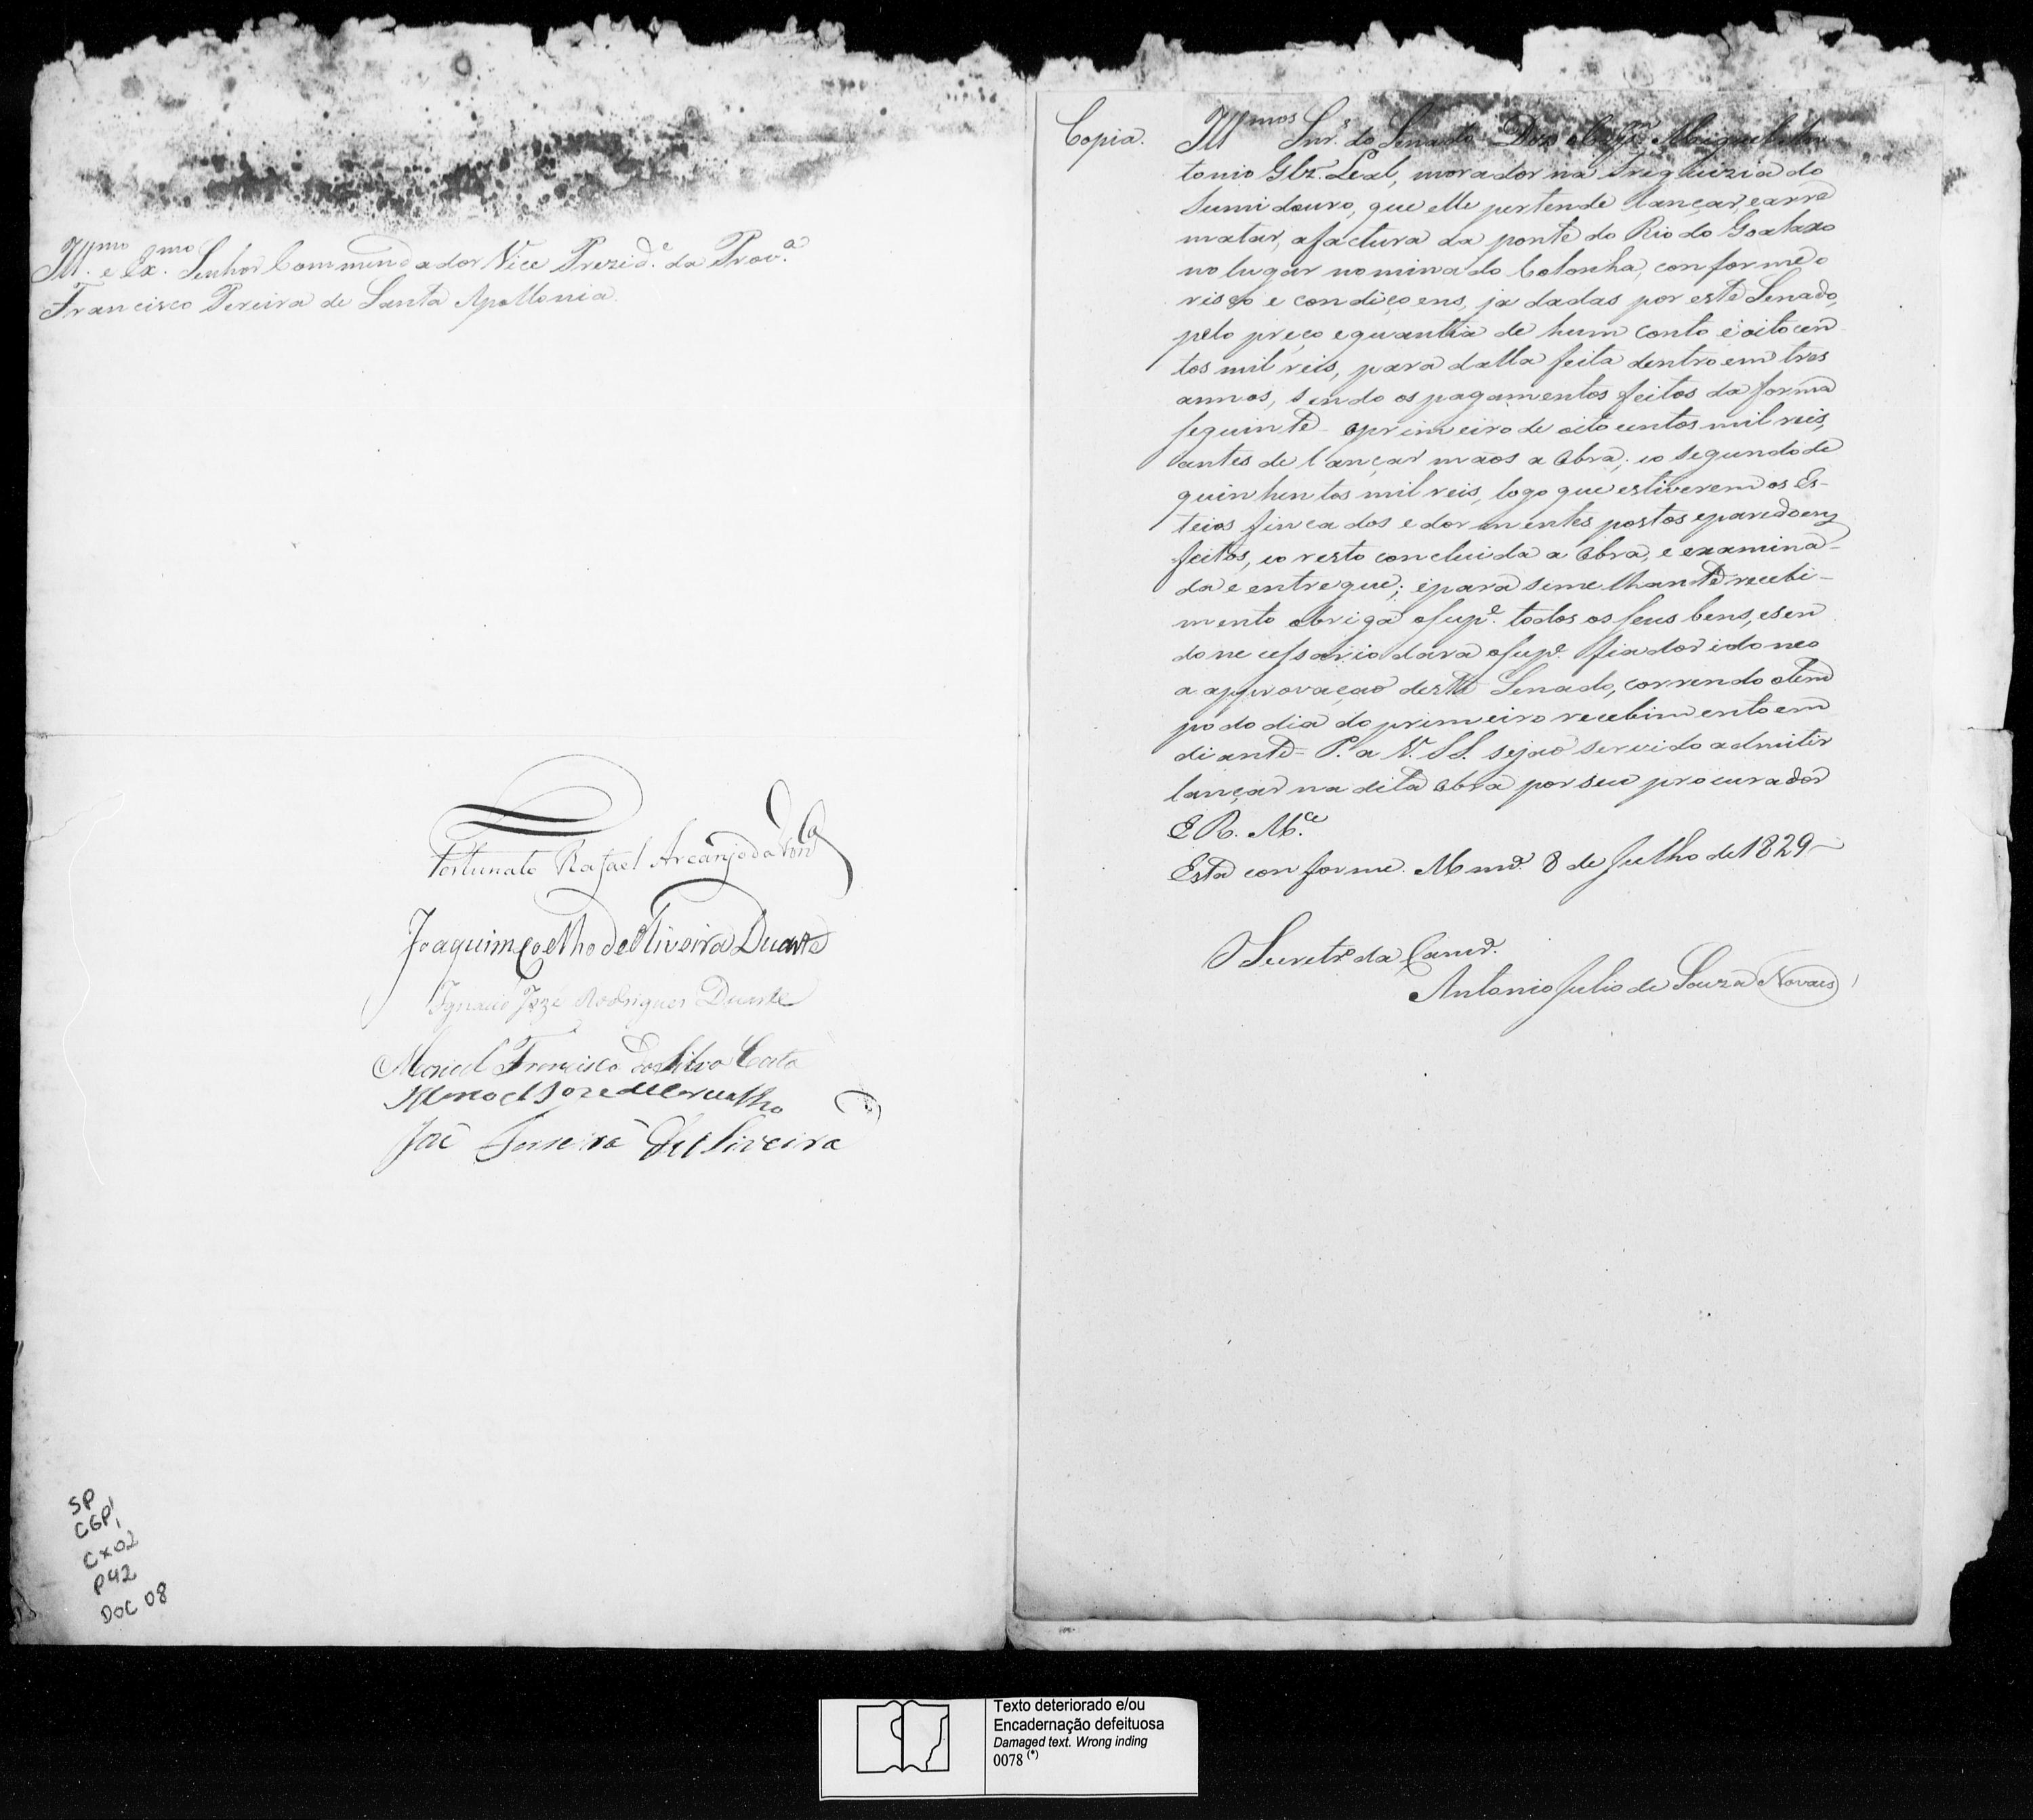 Ill.mo e Ex.mo Senhor Commendador Vice Prezid.e da Prov.a
Francisco Pereira de Santa Apollonia.
Fortunato Rafael Arcanjo da Fon.ca
Joaquim Coelho de Oliveira Duarte
Ignacio Joze Rodrigues Duarte
Manoel Francisco da Silva Costa
Manoel Joze de Carvalho
Joze Ferreira de Oliveira
SP
CGP1
Cx02
P42
DOC 08
Copia. Ill.mos Snr.s do Senado Diz Miguel An
tonio Glz. Leal, morador na Freguizia do
Sumidouro, que elle pertende lançar, earre
matar, afactura da ponte do Rio do Goalaxo
no lugar nominado Colonha, conforme o
risco e condiçoens, ja dadas por este Senado,
pelo preço equantia de hum conto e oitocen
tos mil reis, para dalla feita dentro em tres
annos, sendo os pagamentos feitos da forma
seguinte oprimeiro de oito centos mil reis,
antes de lançar mãos a obra; eo segundo de
quinhentos mil reis, logo que estiverem os Es-
teios fincados e dormentes postos eparedoens
feitos, eo resto concluida a obra, e examina-
da e entregue; epara semelhante recebi-
mento obriga osup.e todos os seus bens, esen
do necessario dara osup.e fiador idoneo
a approvação deste Senado, correndo otem
po do dia do primeiro recebimento em
diante= P. a V. SS. sejão servido admitir
lançar na dita obra por seu procurador
E. R. M.ce
Está conforme. Mnna. 8 de Julho de 1829
O Secretr.o da Camr.a
Antonio Julio de Souza Novaes
Texto deteriorado e/ou
Encadernação defeituosa
Damaged text. Wrong inding
0078 (*)